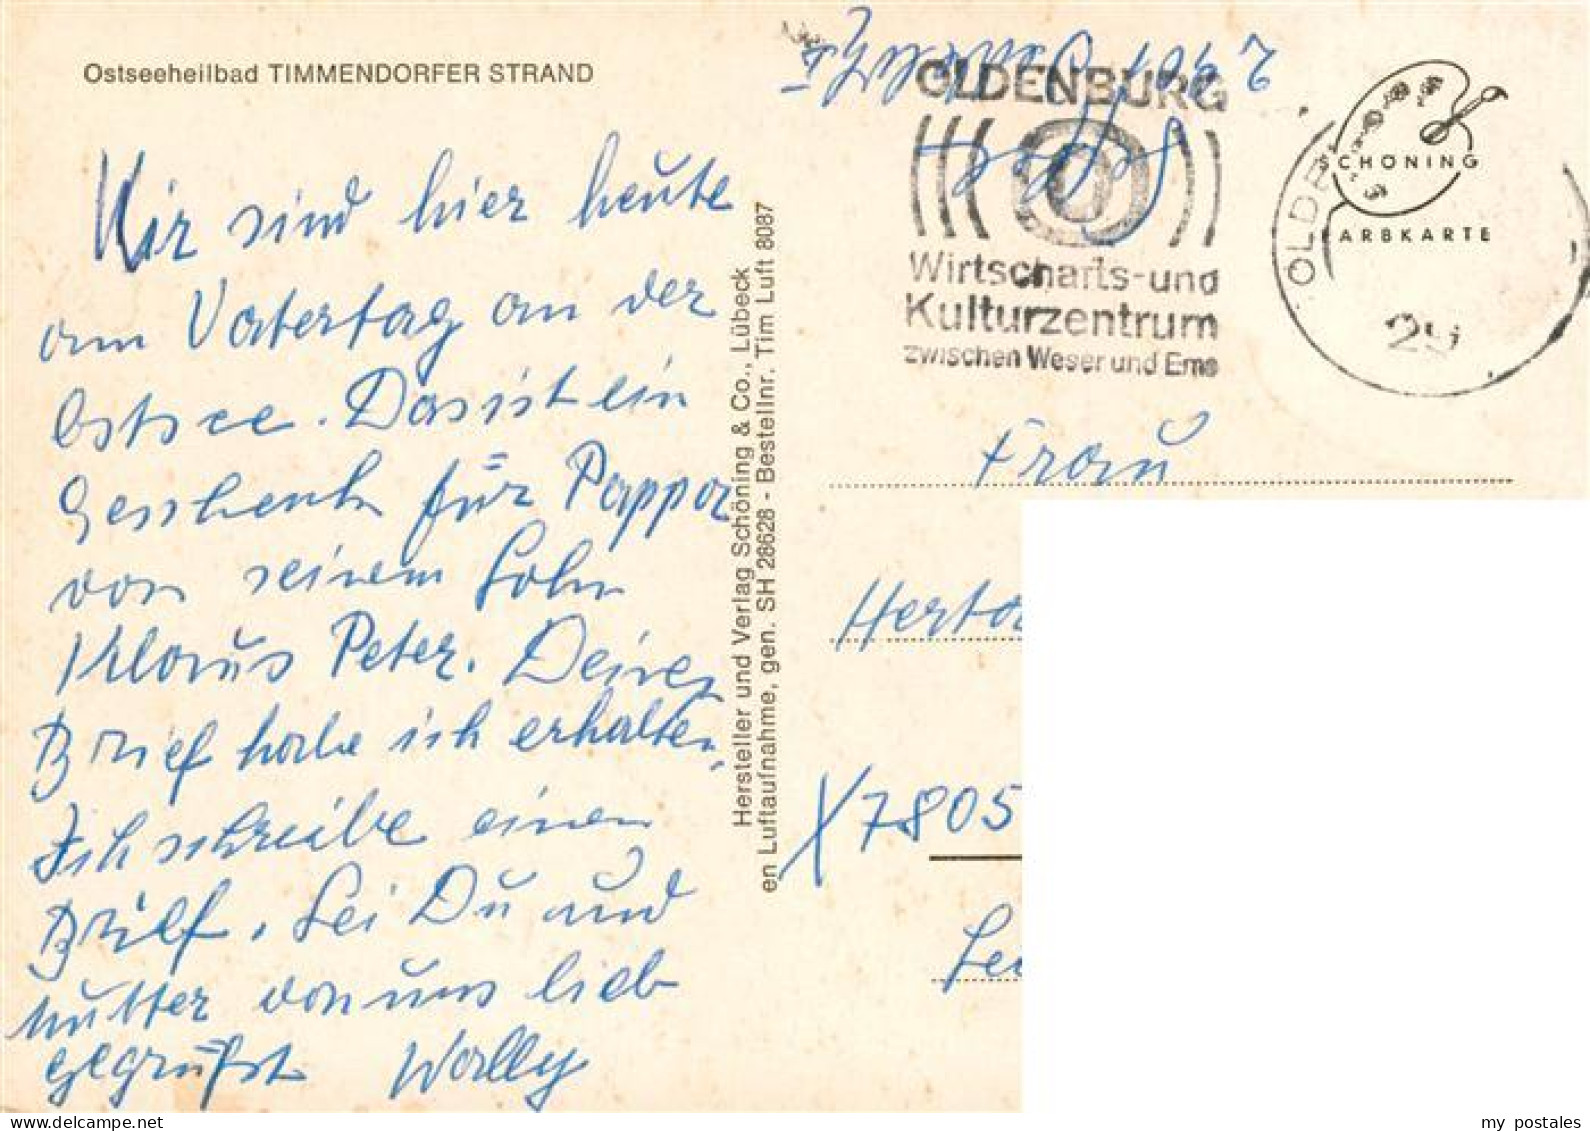 Ostseeheilbad TIMMENDORFER STRAND
Wir sind hier heute
am Vatertag an der
Ostsee. Das ist ein
Geschenk für Pappa
von seinem Sohn
Klaus Peter. Deinen
Brief habe ich erhalten.
Ich schreibe einen
Brief. Sei Du und
Mutter von uns lieb
gegrüßt Wally
Hersteller und Verlag Schöning & Co., Lübeck
en Luftaufnahme, gen. SH 28628 - Bestellnr. Tim Luft 8087
OLDENBURG
Wirtschafts-und
Kulturzentrum
zwischen Weser und Ems
OLDE
29
SCHÖNING
FARBKARTE
Frau
Herta
X7805
my postales